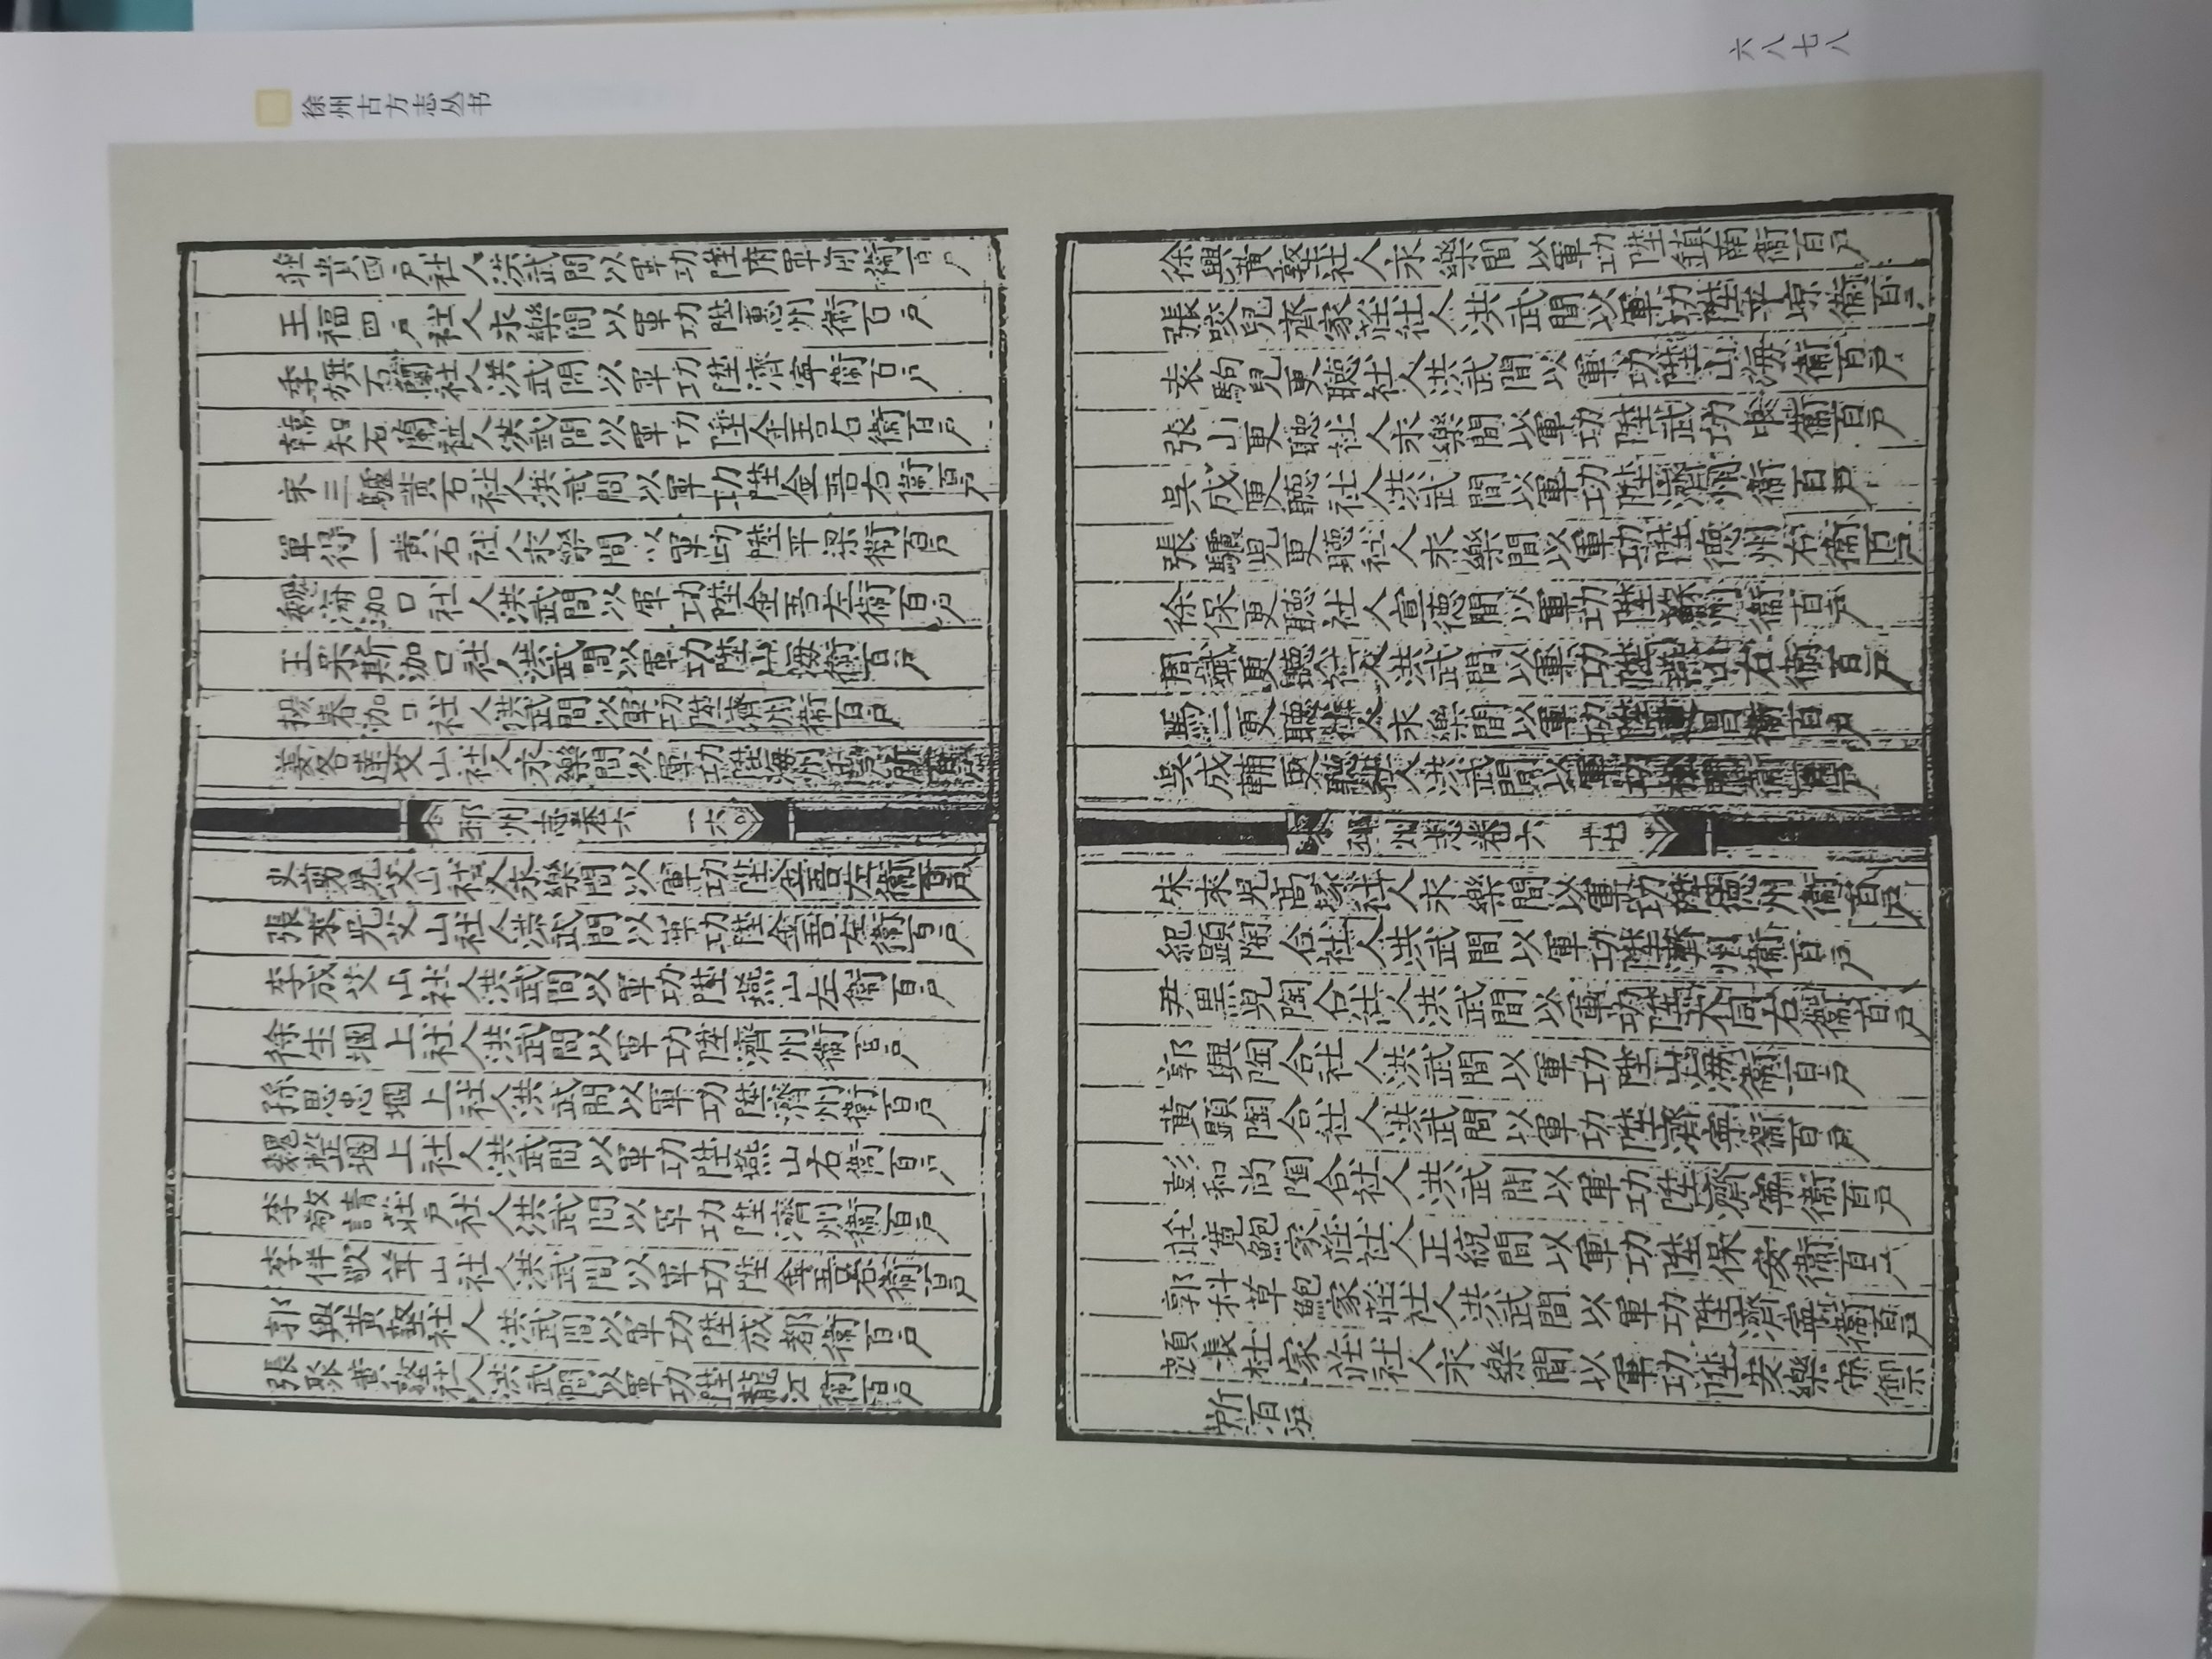 徐州古方志丛书
六八七八
莊貴四戶社人洪武間以軍功陞府軍前衛百戶
王福四戶社人永樂間以軍功陞惠州衛百戶
季旗石蘭社人洪武間以軍功陞濟寧衛百戶
韓知石蘭社人洪武間以軍功陞金吾右衛百戶
宋三驢黃石社人洪武間以軍功陞金吾右衛百戶
單得一黃石社人永樂間以軍功陞平梁衛百戶
魏海泇口社人洪武間以軍功陞金吾左衛百戶
王朵斯泇口社人洪武間以軍功陞山海衛百戶
楊春泇口社人洪武間以軍功陞濟州衛百戶
姜各達艾山社人永樂間以軍功陞海州
邳州志卷六 十六
史剪兒艾山社人永樂間以軍功陞金吾左衛百戶
張來兒艾山社人洪武間以軍功陞金吾左衛百戶
李成艾山社人洪武間以軍功陞燕山左衛百戶
徐生堌上社人洪武間以軍功陞濟州衛百戶
孫思忠堌上社人洪武間以軍功陞濟州衛百戶
魏整堌上社人洪武間以軍功陞燕山右衛百戶
李敬請莊戶社人洪武間以軍功陞濟州衛百戶
李伴歌茸山社人洪武間以軍功陞金吾右衛百戶
郭興黃墪社人洪武間以軍功陞成都衛百戶
張聚黃墪社人洪武間以軍功陞龍江衛百戶
徐興黃墪社人永樂間以軍功陞鎮南衛百戶
張咬兒齊家莊社人洪武間以軍功陞平凉衛百戶
袁駒兒更聽社人洪武間以軍功陞山海衛百戶
張山更聽社人永樂間以軍功陞武功中衛百戶
吳成更聽社人洪武間以軍功陞濟州衛百戶
張驢兒更聽社人永樂間以軍功陞德州右衛百戶
徐保更聽社人宣德間以軍功陞蘇州衛百戶
周鐵更聽社人洪武間以軍功陞燕山右衛百戶
馬二更聽社人永樂間以軍功陞衛百戶
吳成輔更聽社人洪武間以軍功陞衛百戶
邳州志卷六 十七
朱來兒高塚社人永樂間以軍功陞德州衛百戶
紀顯陶合社人洪武間以軍功陞濟州衛百戶
尹黑兒陶合社人洪武間以軍功陞大同右衛百戶
郭興陶合社人洪武間以軍功陞山海衛百戶
黃顯陶合社人洪武間以軍功陞濟寧衛百戶
彭和尚陶合社人洪武間以軍功陞濟寧衛百戶
莊寬鮑家莊社人正統間以軍功陞保安衛百戶
郭科草鮑家莊社人洪武間以軍功陞濟寧衛百戶
顏長杜家莊社人永樂間以軍功陞安樂守禦
所百戶